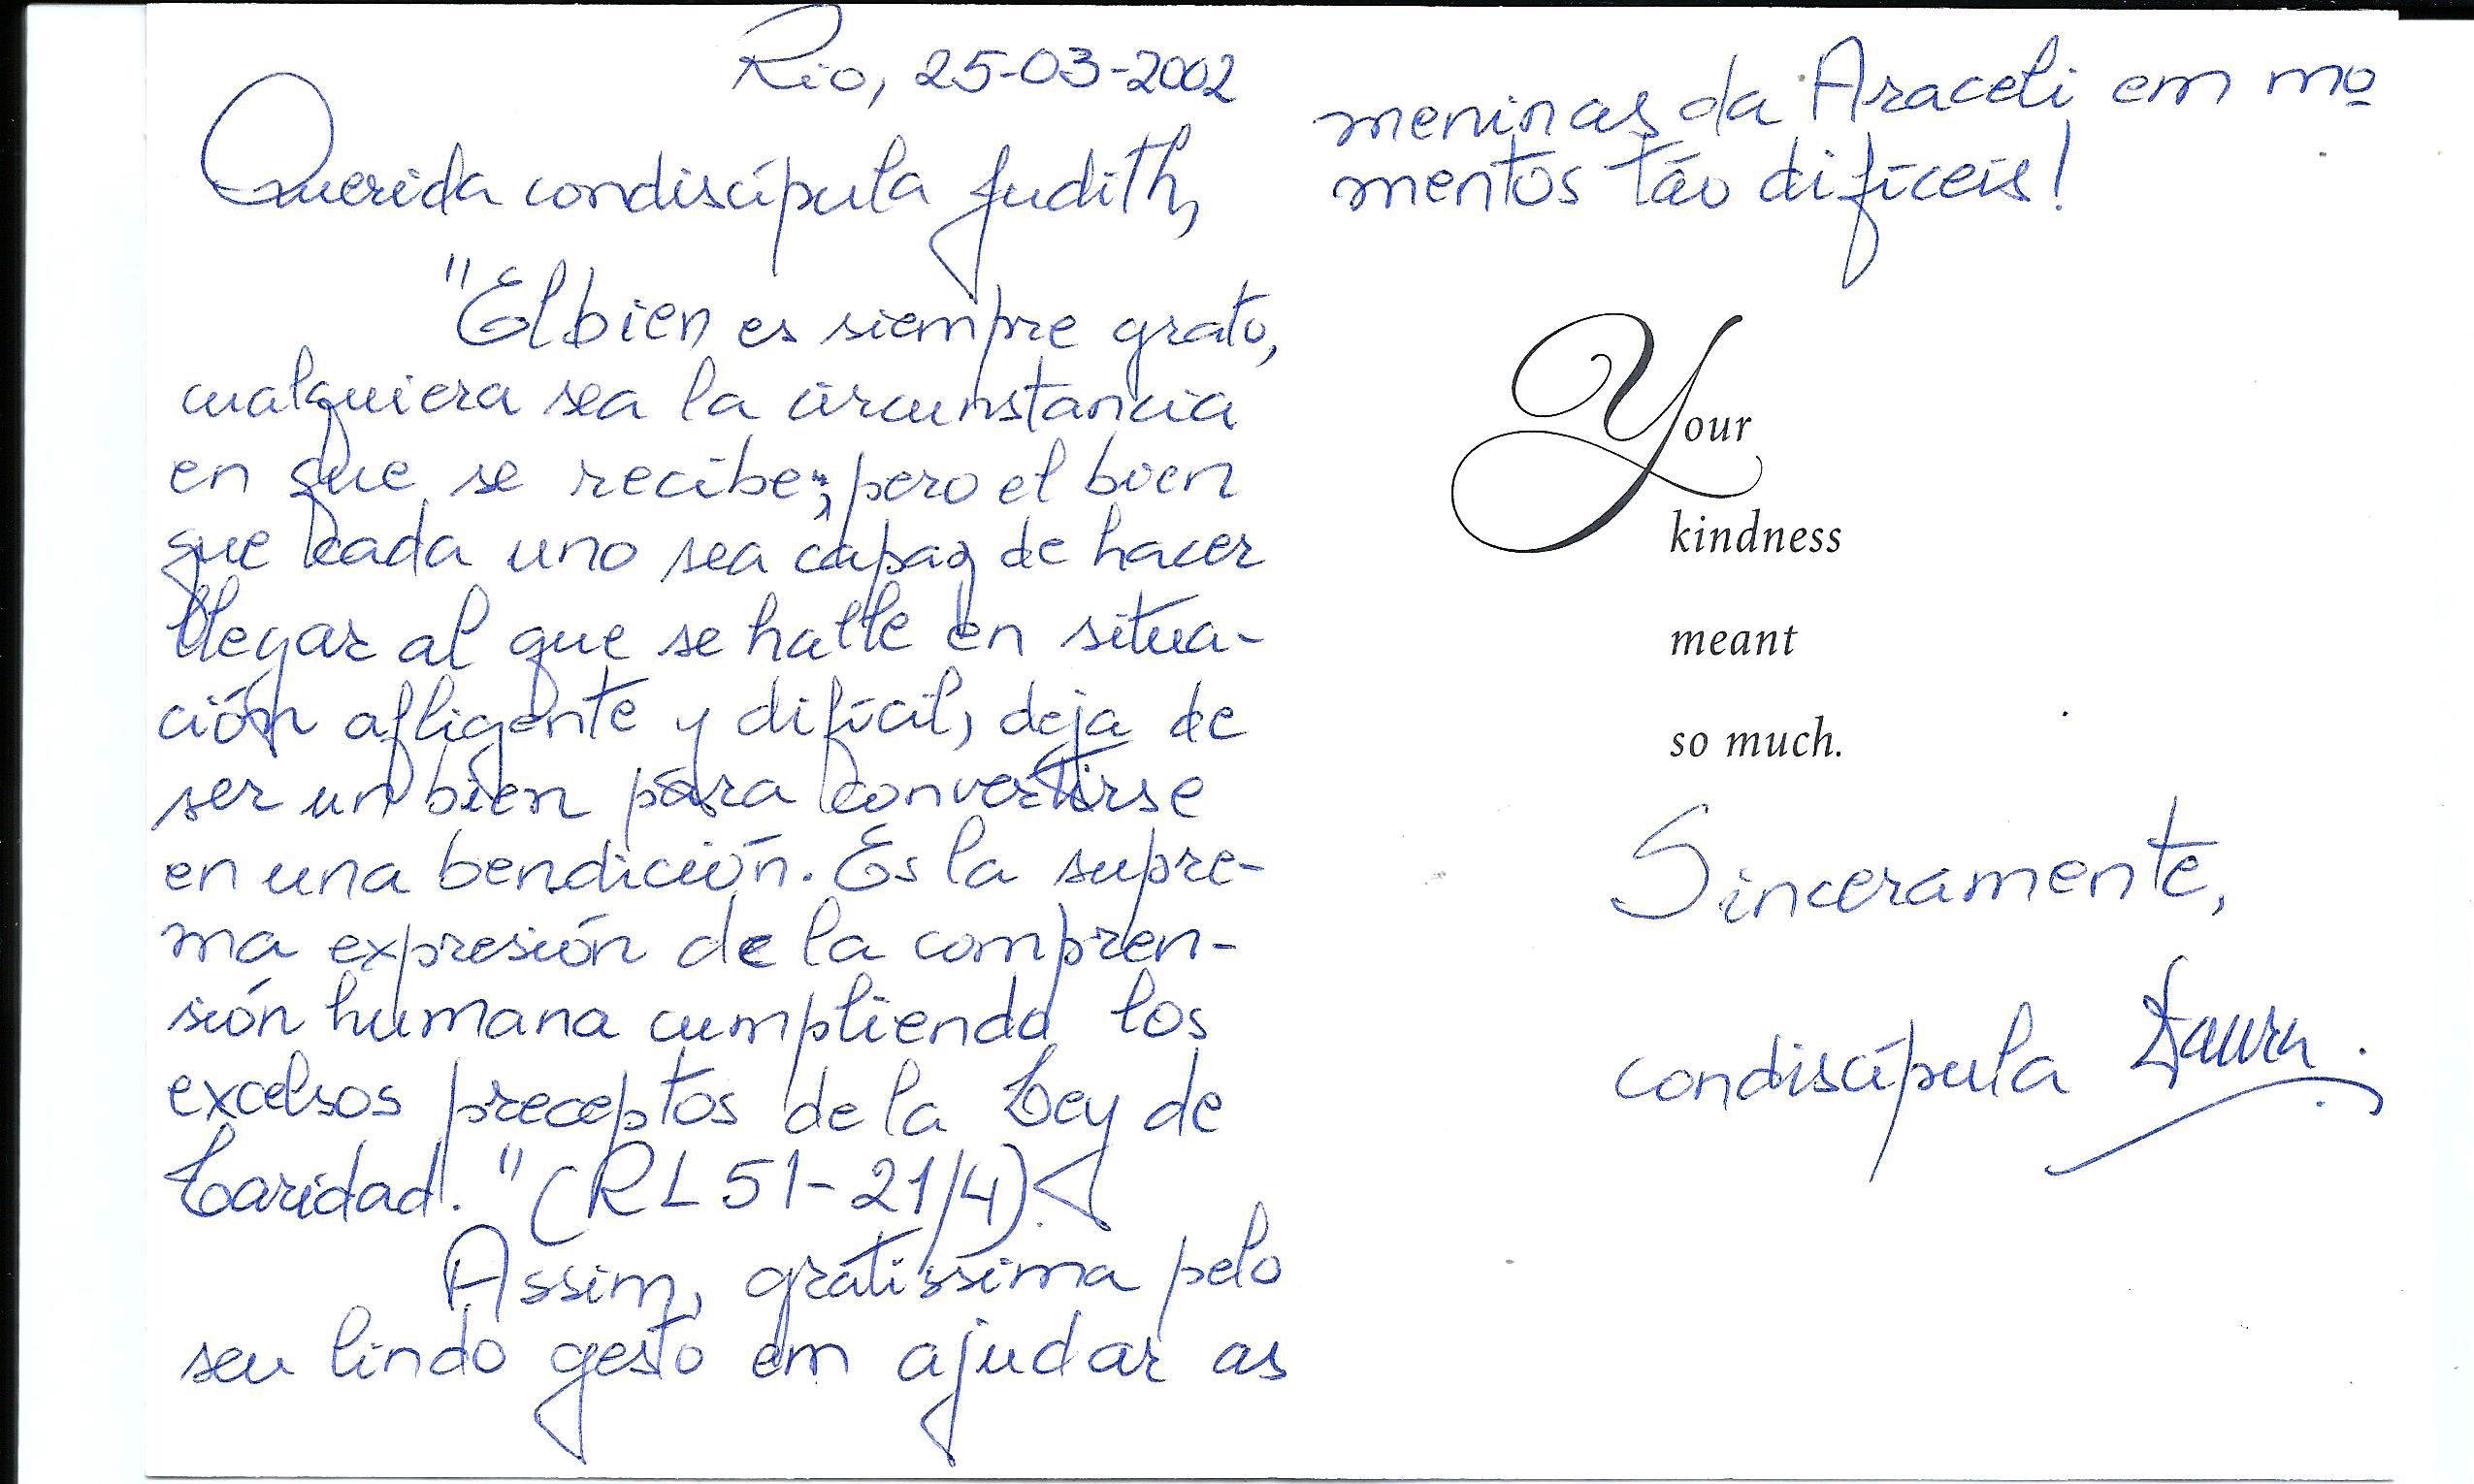 Rio, 25-03-2002
Querida condiscípula Judith,
"El bien es siempre grato,
cualquiera sea la circunstancia
en que se recibe; pero el bien
que cada uno sea capaz de hacer
llegar al que se halle en situa-
ción afligente y difícil, deja de
ser un bien para convertirse
en una bendición. Es la supre-
ma expresión de la compren-
sión humana cumpliendo los
excelsos preceptos de la Ley de
Caridad." (RL 51-21/4).
Assim, gratíssima pelo
seu lindo gesto em ajudar as
meninas da Araceli em mo
mentos tão difíceis!
Your
kindness
meant
so much.
Sinceramente,
condiscípula Laura.